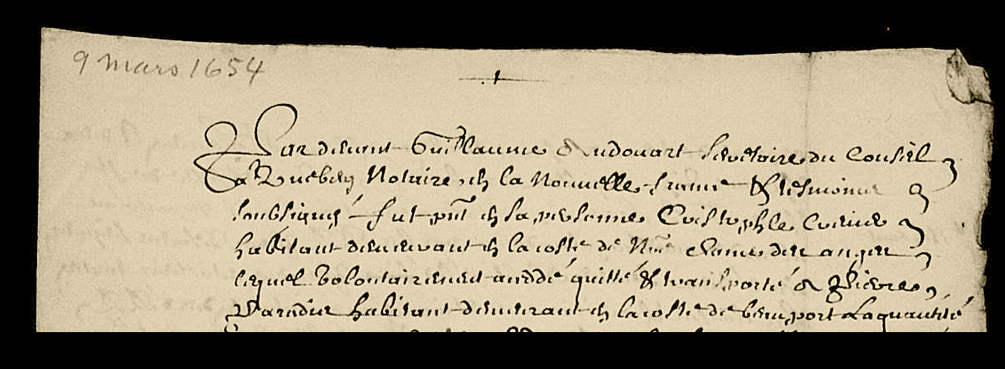 9 mars 1654
Pardevant Guillaume Audouart Secretaire du Conseil
a Quebecq Notaire en la Nouvelle france & tesmoins
soubsignés fut pnt en sa personne Cristophle
habitant demeurant en la coste de Nre dame des anges
lequel volontairement a ceddé quitté & transporté a Pierre
Paradis habitant demeurant en la coste de beauport La quantité